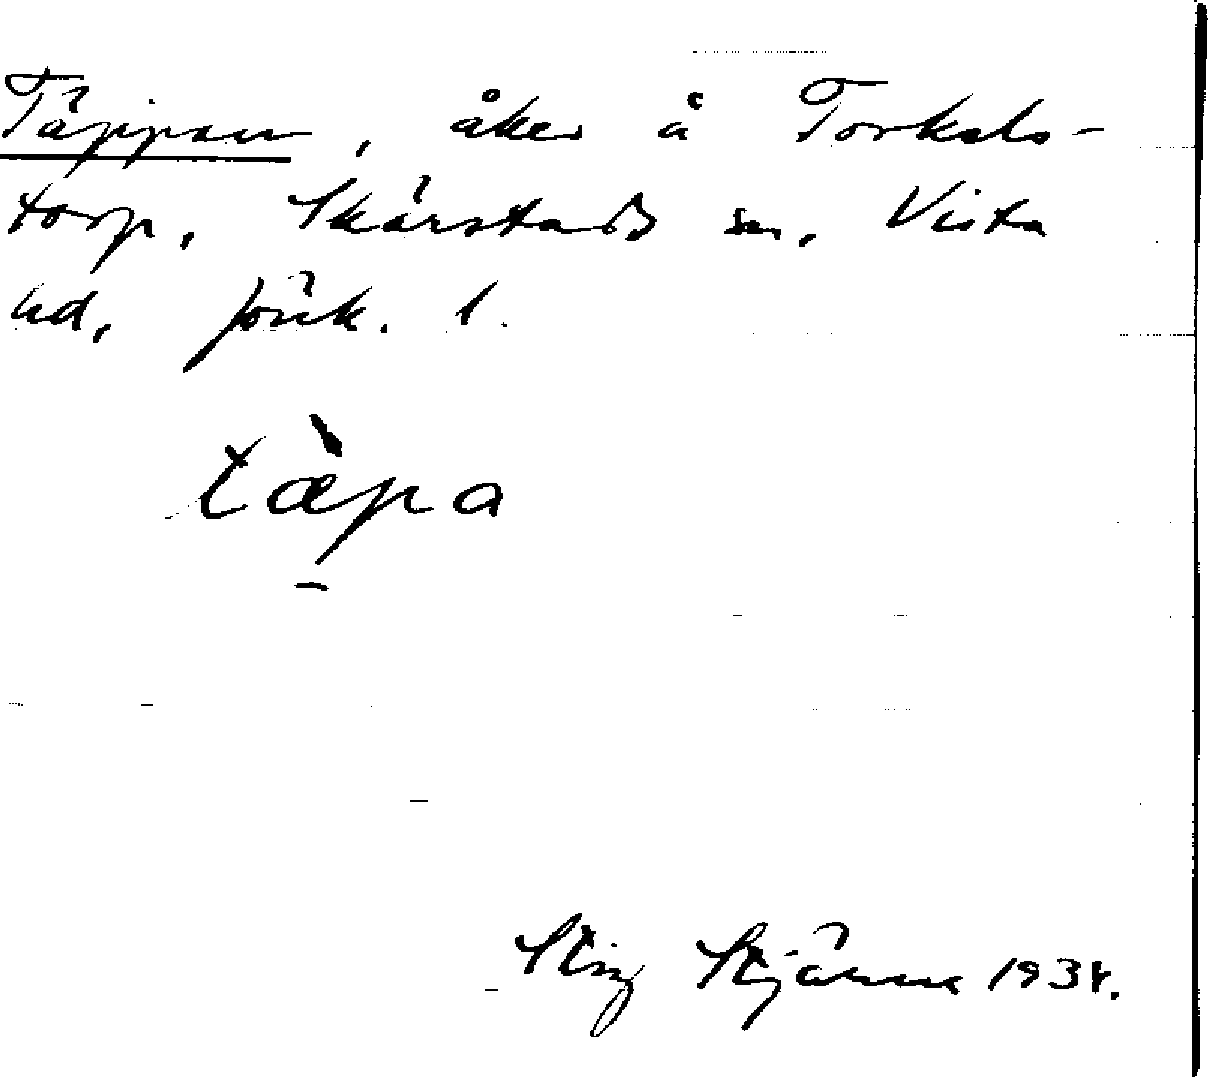 Täppan, åker å Torkels-
torp, Skärstads sn, Vista
hd, Jönk. l.
tæ̀p̱a
Stig Stjärne 1934.